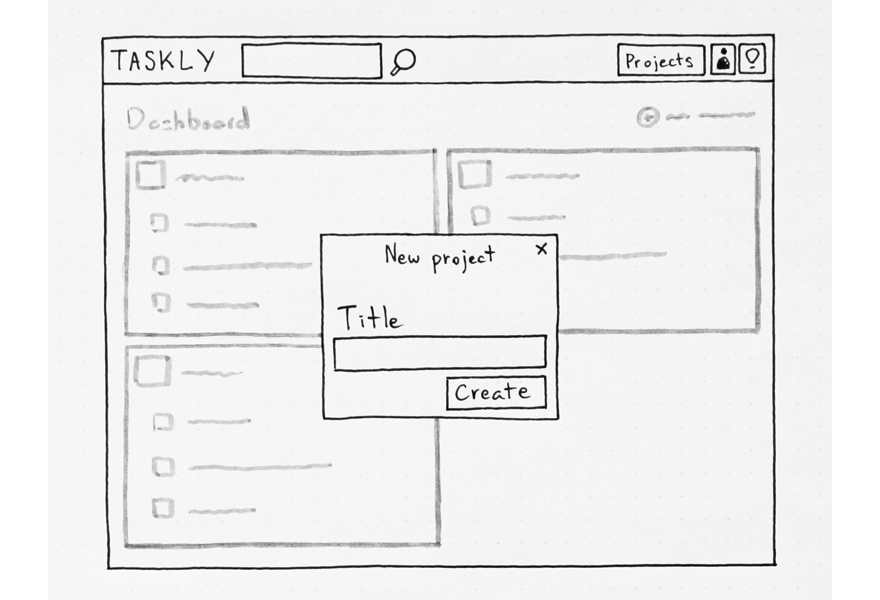 TASKLY
Projects
Dashboard
New project x
Title
Create